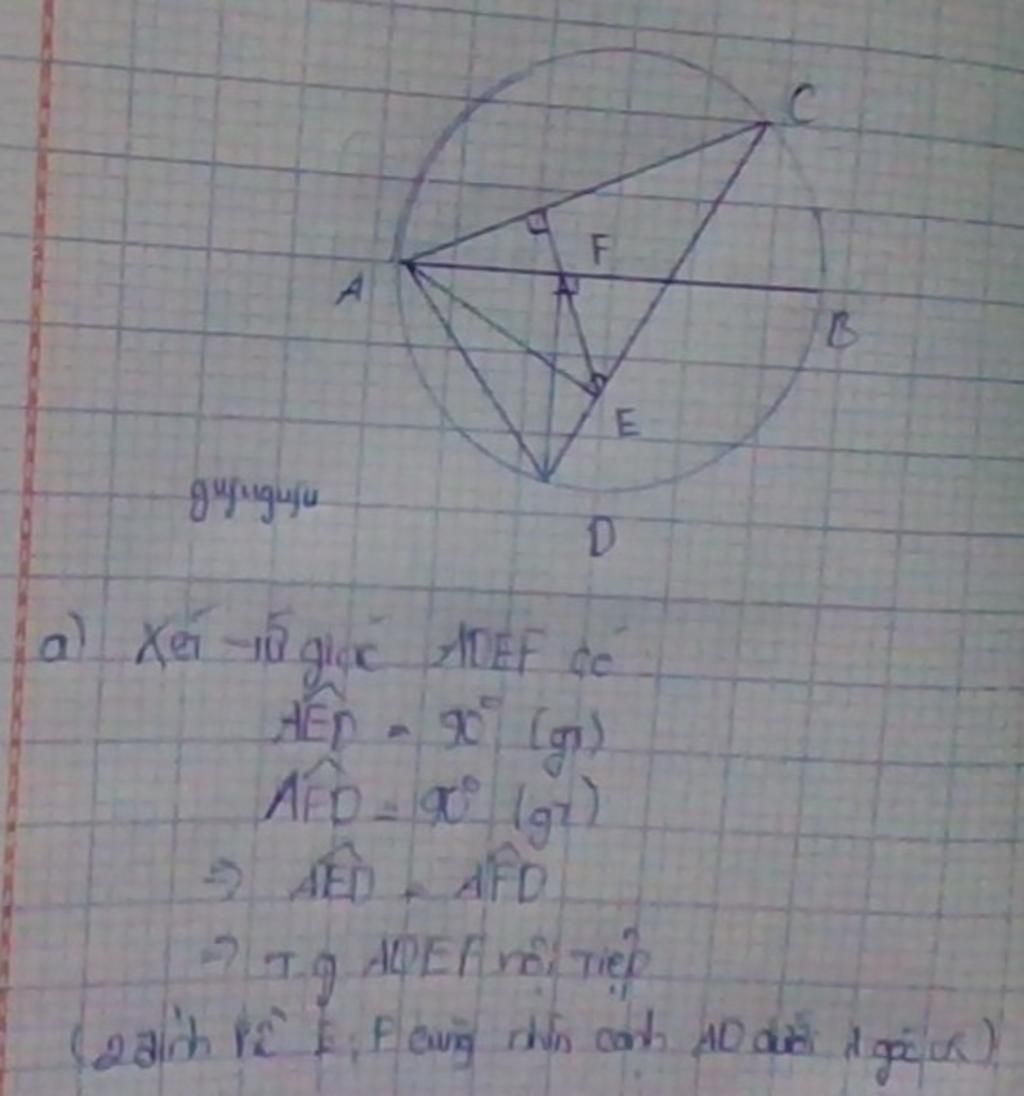 C
F
A
B
E
D
a) Xét tứ giác ADEF có
AÊD = 90° (gt)
AF̂D = 90° (gt)
=> AÊD = AF̂D
=> T.g ADEF nội tiếp
(2 đỉnh kề E, F cùng nhìn cạnh AD dưới 1 góc)